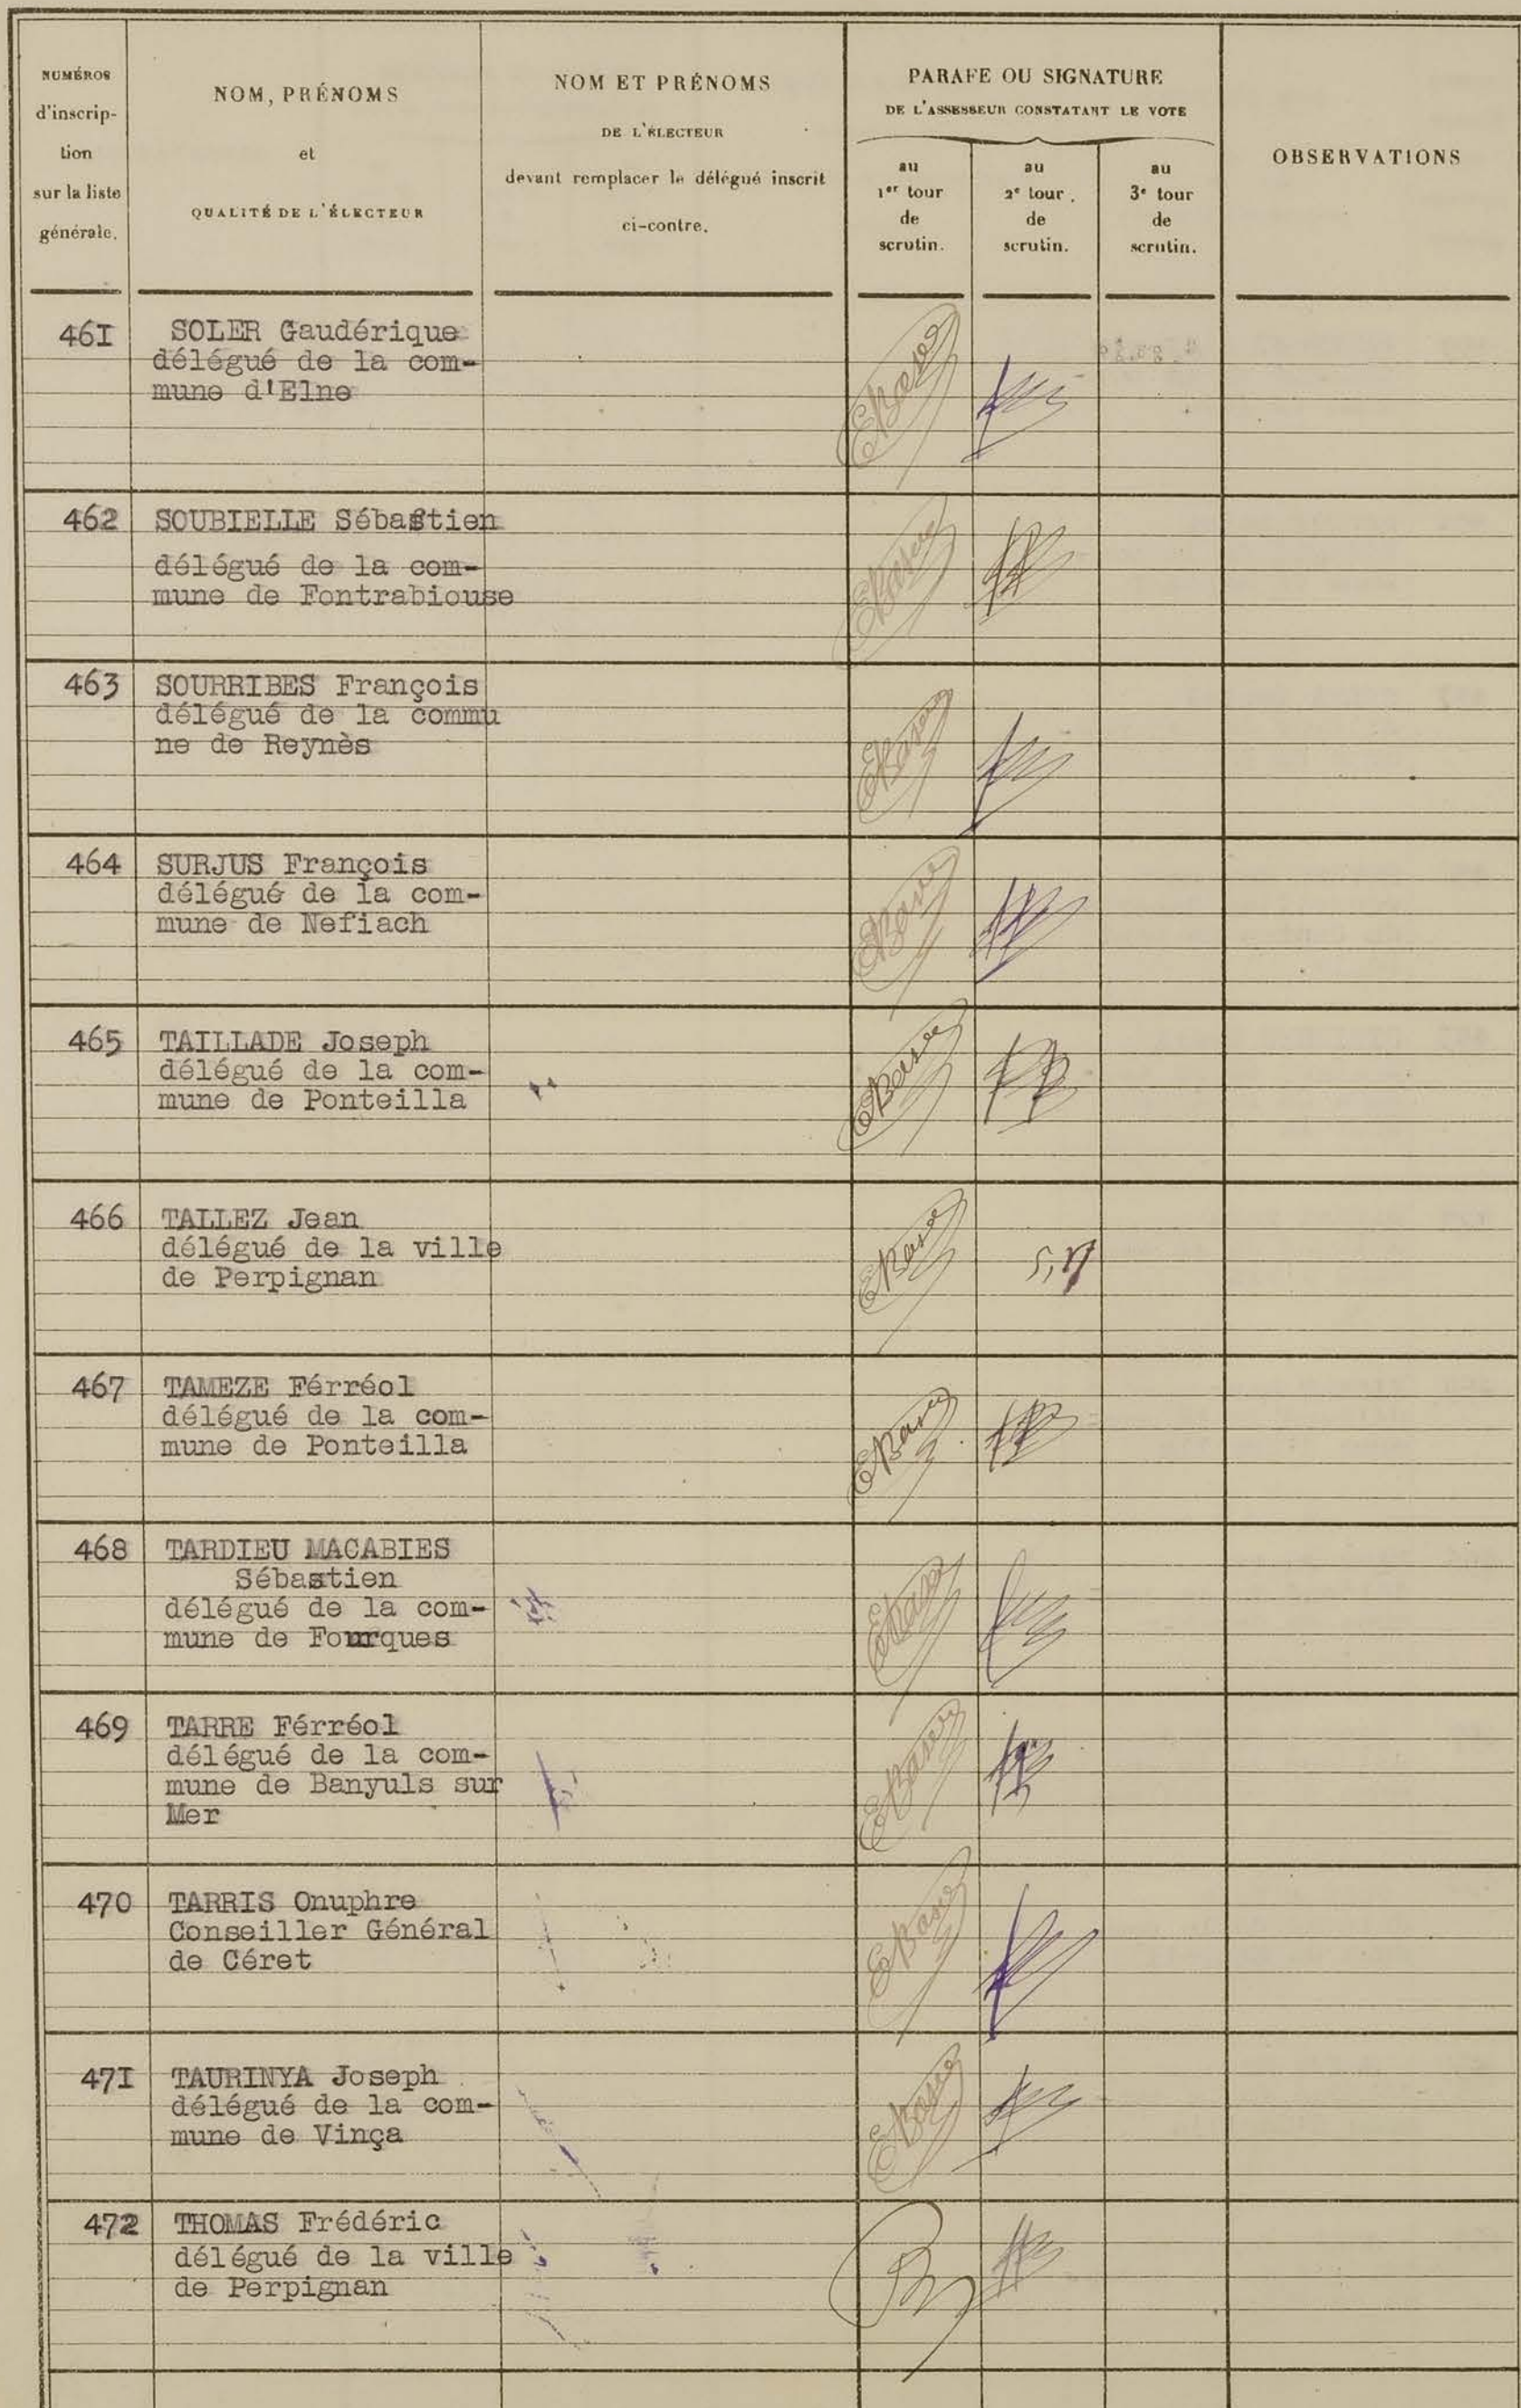 NUMÉROS
d'inscrip-
tion
sur la liste
générale.
NOM, PRÉNOMS
et
QUALITÉ DE L'ÉLECTEUR
NOM ET PRÉNOMS
DE L'ÉLECTEUR
devant remplacer le délégué inscrit
ci-contre.
PARAFE OU SIGNATURE
DE L'ASSESSEUR CONSTATANT LE VOTE
au
1er tour
de
scrutin.
au
2e tour.
de
scrutin.
au
3e tour
de
scrutin.
OBSERVATIONS
46I SOLER Gaudérique
délégué de la com-
mune d'Elne
462 SOUBIELLE Sébastien
délégué de la com-
mune de Fontrabiouse
463 SOURRIBES François
délégué de la commu
ne de Reynès
464 SURJUS François
délégué de la com-
mune de Nefiach
465 TAILLADE Joseph
délégué de la com-
mune de Ponteilla
466 TALLEZ Jean
délégué de la ville
de Perpignan
467 TAMEZE Férréol
délégué de la com-
mune de Ponteilla
468 TARDIEU MACABIES
Sébastien
délégué de la com-
mune de Fourques
469 TARRE Férréol
délégué de la com-
mune de Banyuls sur
Mer
470 TARRIS Onuphre
Conseiller Général
de Céret
47I TAURINYA Joseph
délégué de la com-
mune de Vinça
472 THOMAS Frédéric
délégué de la ville
de Perpignan